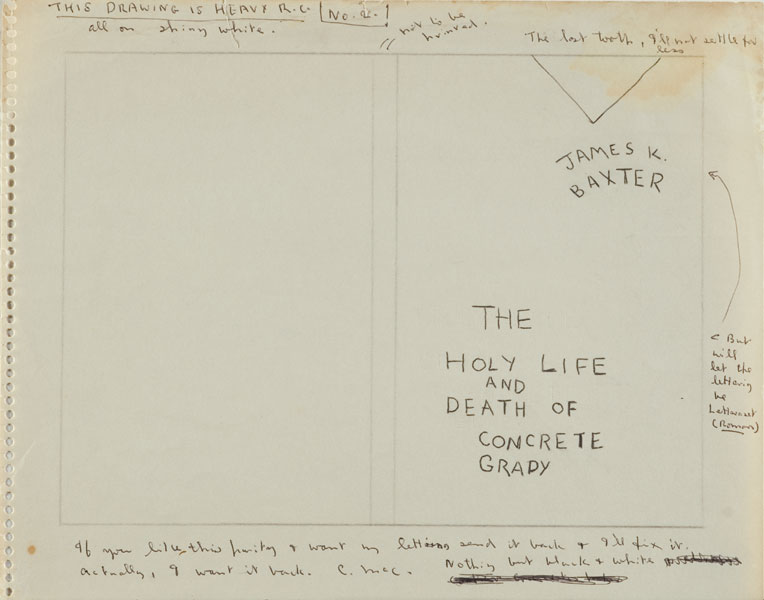 THIS DRAWING IS HEAVY R.C. No. 2.!
all on shiny white.
not to be
printed.
The last tooth, I'll not settle for
less
JAMES K.
BAXTER
THE
HOLY LIFE
AND
DEATH OF
CONCRETE
GRADY
< But
will
let the
lettering
be
Letteraset
(Roman)
If you like this purity & want my lettering send it back & I'll fix it.
actually, I want it back. C. McC. Nothing but black & white